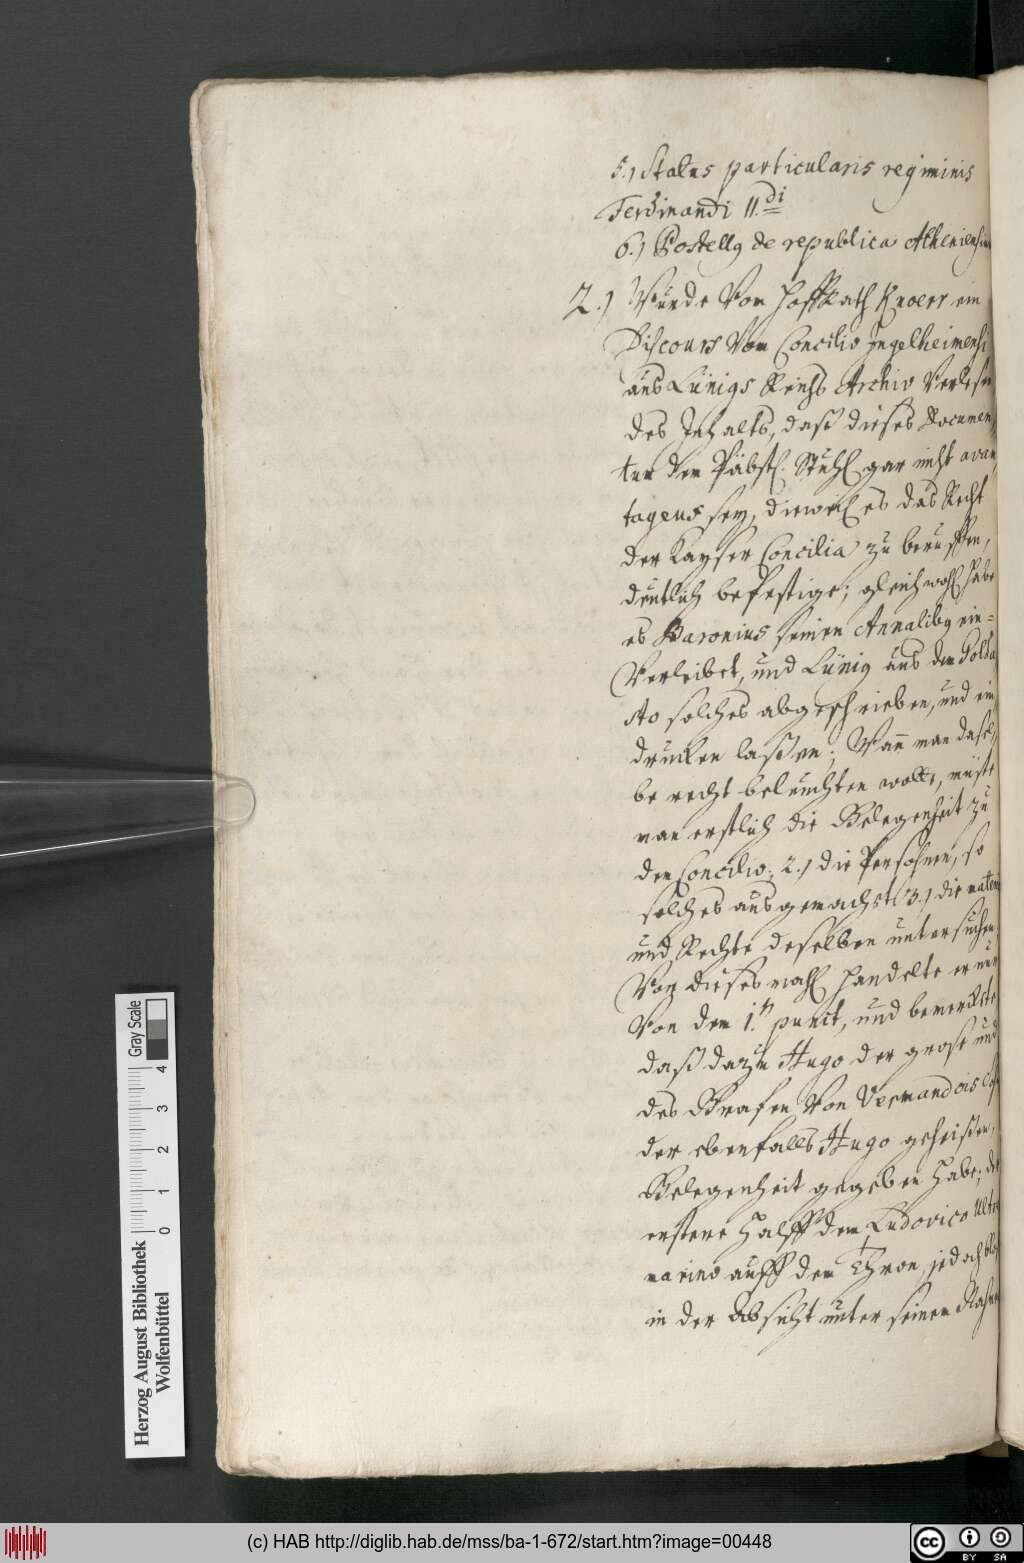 5.) Status particularis regiminis
Ferdinandi II.di
6.) Postellg de republica Atheniensium
2.) Wurde Von HoffRath Knoerr ein
Discours Vom Concilio Ingelheimensi
aus Lünigs Reichs Archiv Verlesen
des Inhalts, daß dieses Documen
tum dem Päbstl. Stuhl gar nicht avan
tageus sey, dieweil es das Recht
der Kayser Concilia zu beruffen,
deutlich befestige; gleichwohl habe
es Baronius seinen Annalibg ein=
Verleibet, und Lünig aus dem Golda
sto solches abgeschrieben, und ein
drucken laßen; Wann man dassel
be recht beleuchten wolte, müste
man erstlich die Gelegenheit zu
dem Concilio; 2.) die Persohnen, so
solches ausgemacht 3.) die materie
und Rechte deselben untersuchen
Vor dieses mahl handelte er nur
Von dem 1.n punct, und bemerckte
daß dazu Hugo der grose und
des Grafen Von Vermandois
der ebenfalls Hugo geheißen,
Gelegenheit gegeben habe; der
erstere halff dem Ludovico Ultra
marino auff den Thron, jedoch bloß
in der Absicht unter seinem Nahmen
Herzog August Bibliothek
Wolfenbüttel
Gray Scale
0 1 2 3 4
(c) HAB http://diglib.hab.de/mss/ba-1-672/start.htm?image=00448
cc BY SA